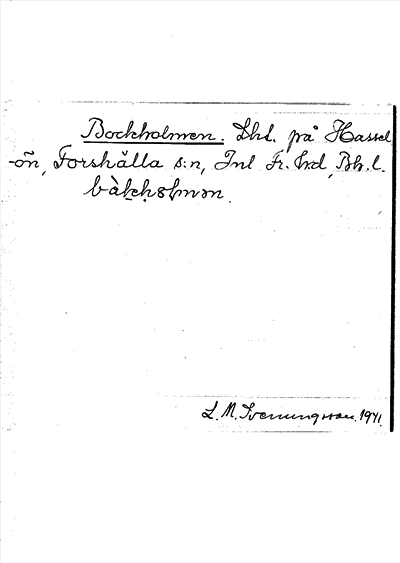 Bockholmen. Lht. på Hassel
-ön, Forshälla s:n, Inl Fr. hd, Bh. l.
L. M. Svenungsson. 1941.